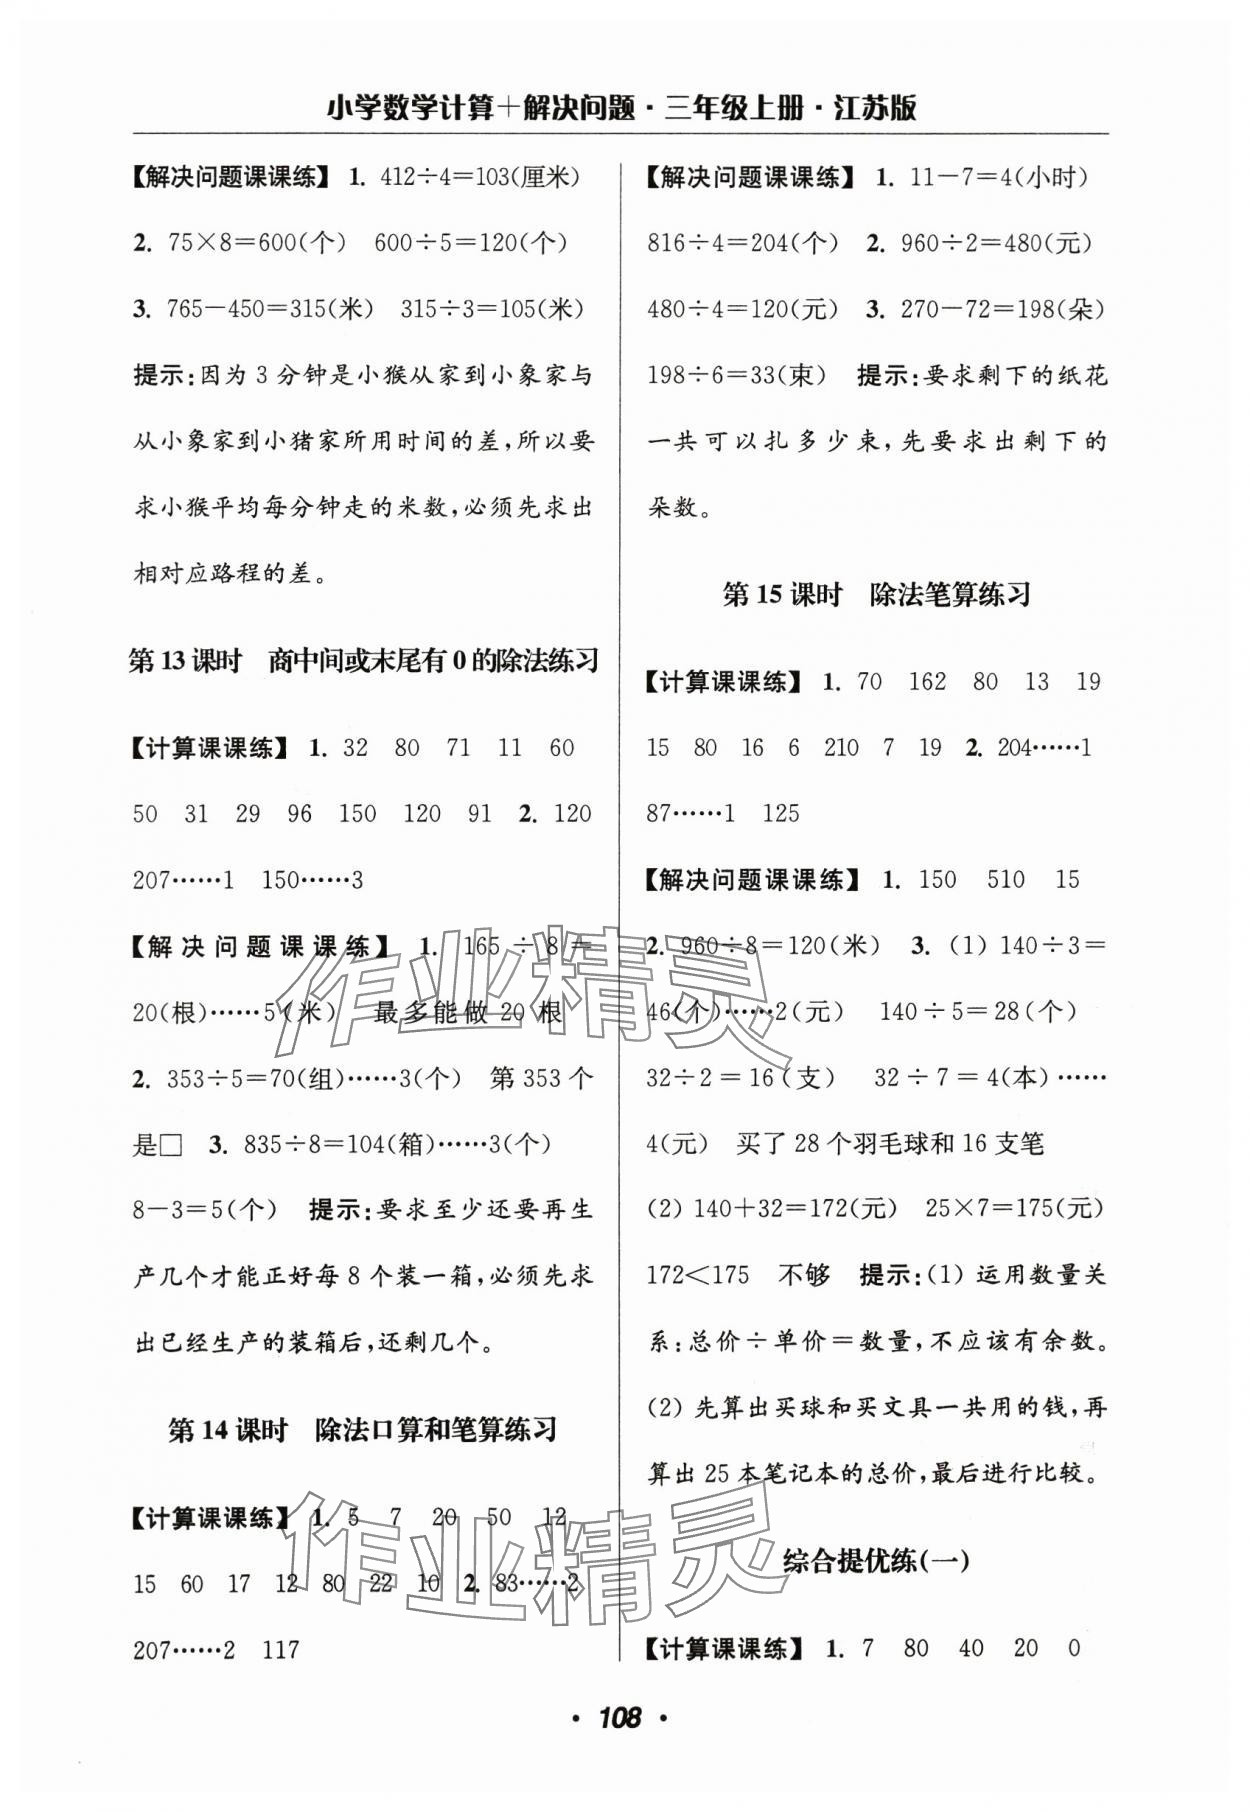 小学数学计算＋解决问题·三年级上册·江苏版
【解决问题课课练】 1. 412÷4＝103(厘米)
2. 75×8＝600(个) 600÷5＝120(个)
3. 765－450＝315(米) 315÷3＝105(米)
提示：因为 3 分钟是小猴从家到小象家与
从小象家到小猪家所用时间的差，所以要
求小猴平均每分钟走的米数，必须先求出
相对应路程的差。
第 13 课时 商中间或末尾有 0 的除法练习
【计算课课练】 1. 32 80 71 11 60
50 31 29 96 150 120 91 2. 120
207……1 150……3
【解决问题课课练】 1. 165÷8＝
20(根)……5(米) 最多能做 20 根
2. 353÷5＝70(组)……3(个) 第 353 个
是□ 3. 835÷8＝104(箱)……3(个)
8－3＝5(个) 提示：要求至少还要再生
产几个才能正好每 8 个装一箱，必须先求
出已经生产的装箱后，还剩几个。
第 14 课时 除法口算和笔算练习
【计算课课练】 1. 5 7 20 50 12
15 60 17 12 80 22 10 2. 83……2
207……2 117
【解决问题课课练】 1. 11－7＝4(小时)
816÷4＝204(个) 2. 960÷2＝480(元)
480÷4＝120(元) 3. 270－72＝198(朵)
198÷6＝33(束) 提示：要求剩下的纸花
一共可以扎多少束，先要求出剩下的
朵数。
第 15 课时 除法笔算练习
【计算课课练】 1. 70 162 80 13 19
15 80 16 6 210 7 19 2. 204……1
87……1 125
【解决问题课课练】 1. 150 510 15
2. 960÷8＝120(米) 3. (1) 140÷3＝
46(个)……2(元) 140÷5＝28(个)
32÷2＝16(支) 32÷7＝4(本)……
4(元) 买了 28 个羽毛球和 16 支笔
(2) 140＋32＝172(元) 25×7＝175(元)
172＜175 不够 提示：(1) 运用数量关
系：总价÷单价＝数量，不应该有余数。
(2) 先算出买球和买文具一共用的钱，再
算出 25 本笔记本的总价，最后进行比较。
综合提优练(一)
【计算课课练】 1. 7 80 40 20 0
· 108 ·
作业精灵
作业精灵